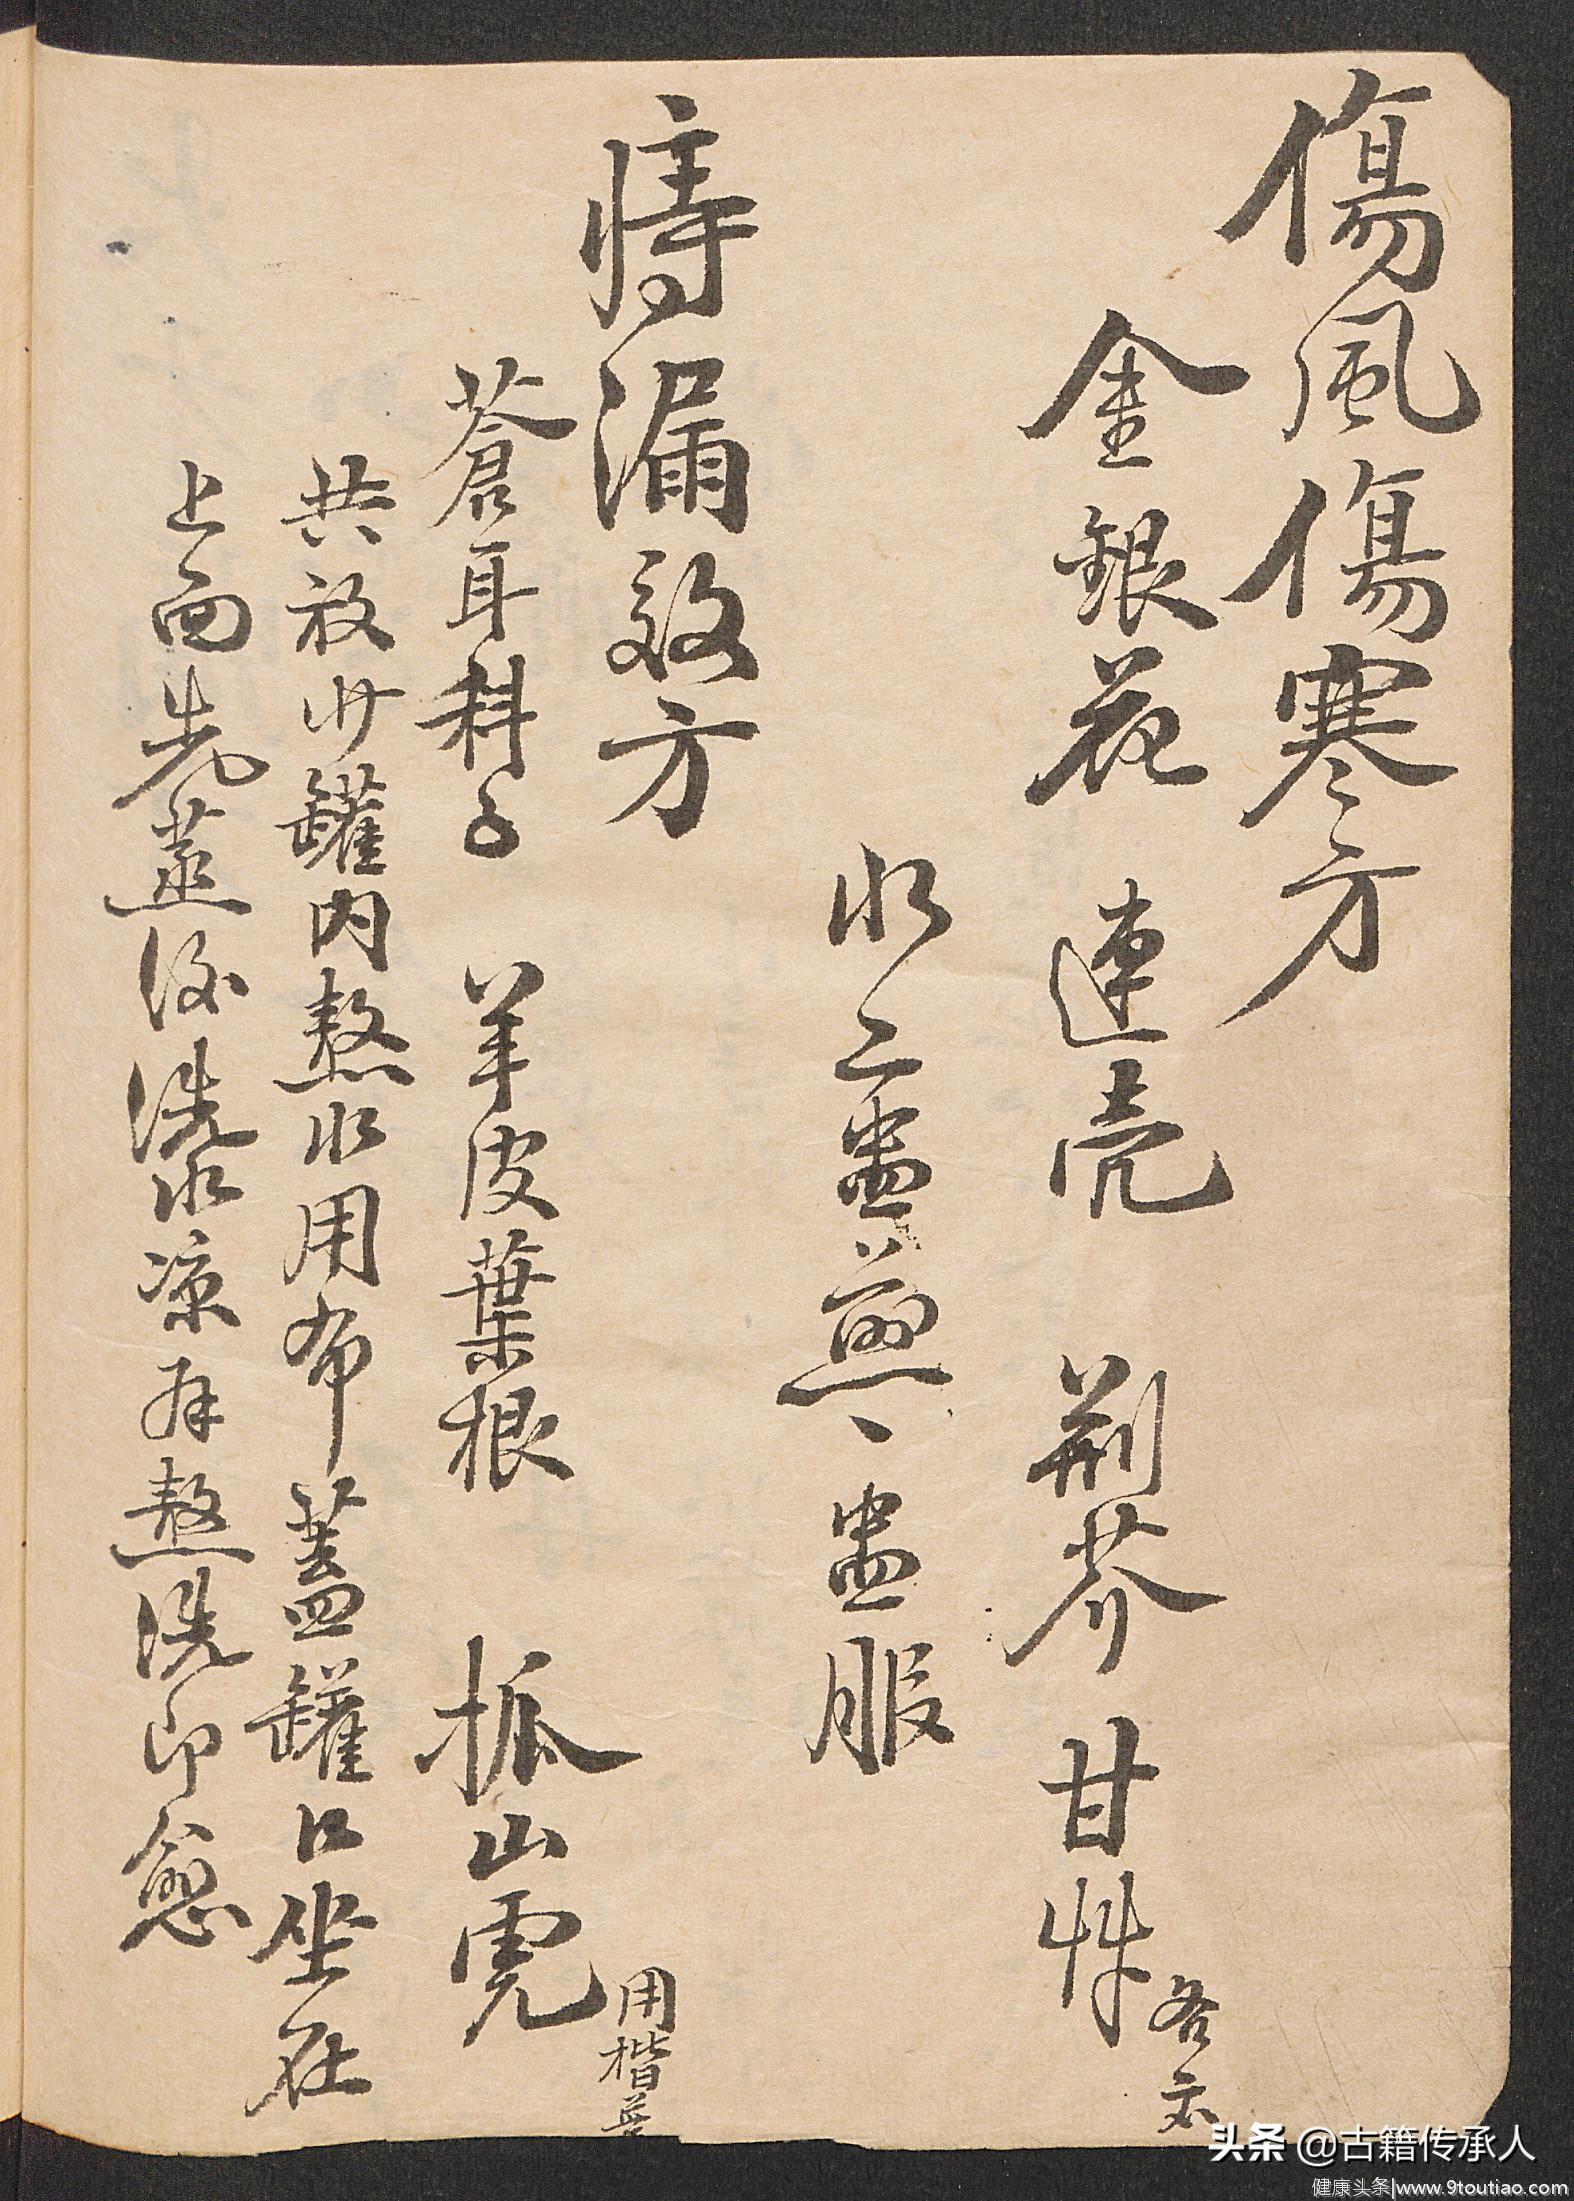 傷風傷寒方
金銀花 連壳 荆芥 甘草 各
水二盅煎、盅服
痔漏效方
蒼耳科子 羊皮葉根 抓山虎 用
共放沙罐内熬水用布蓋罐口坐在
上面先蒸後洗水凉再熬洗即愈
头条 @古籍传承人
健康头条|www.9toutiao.com